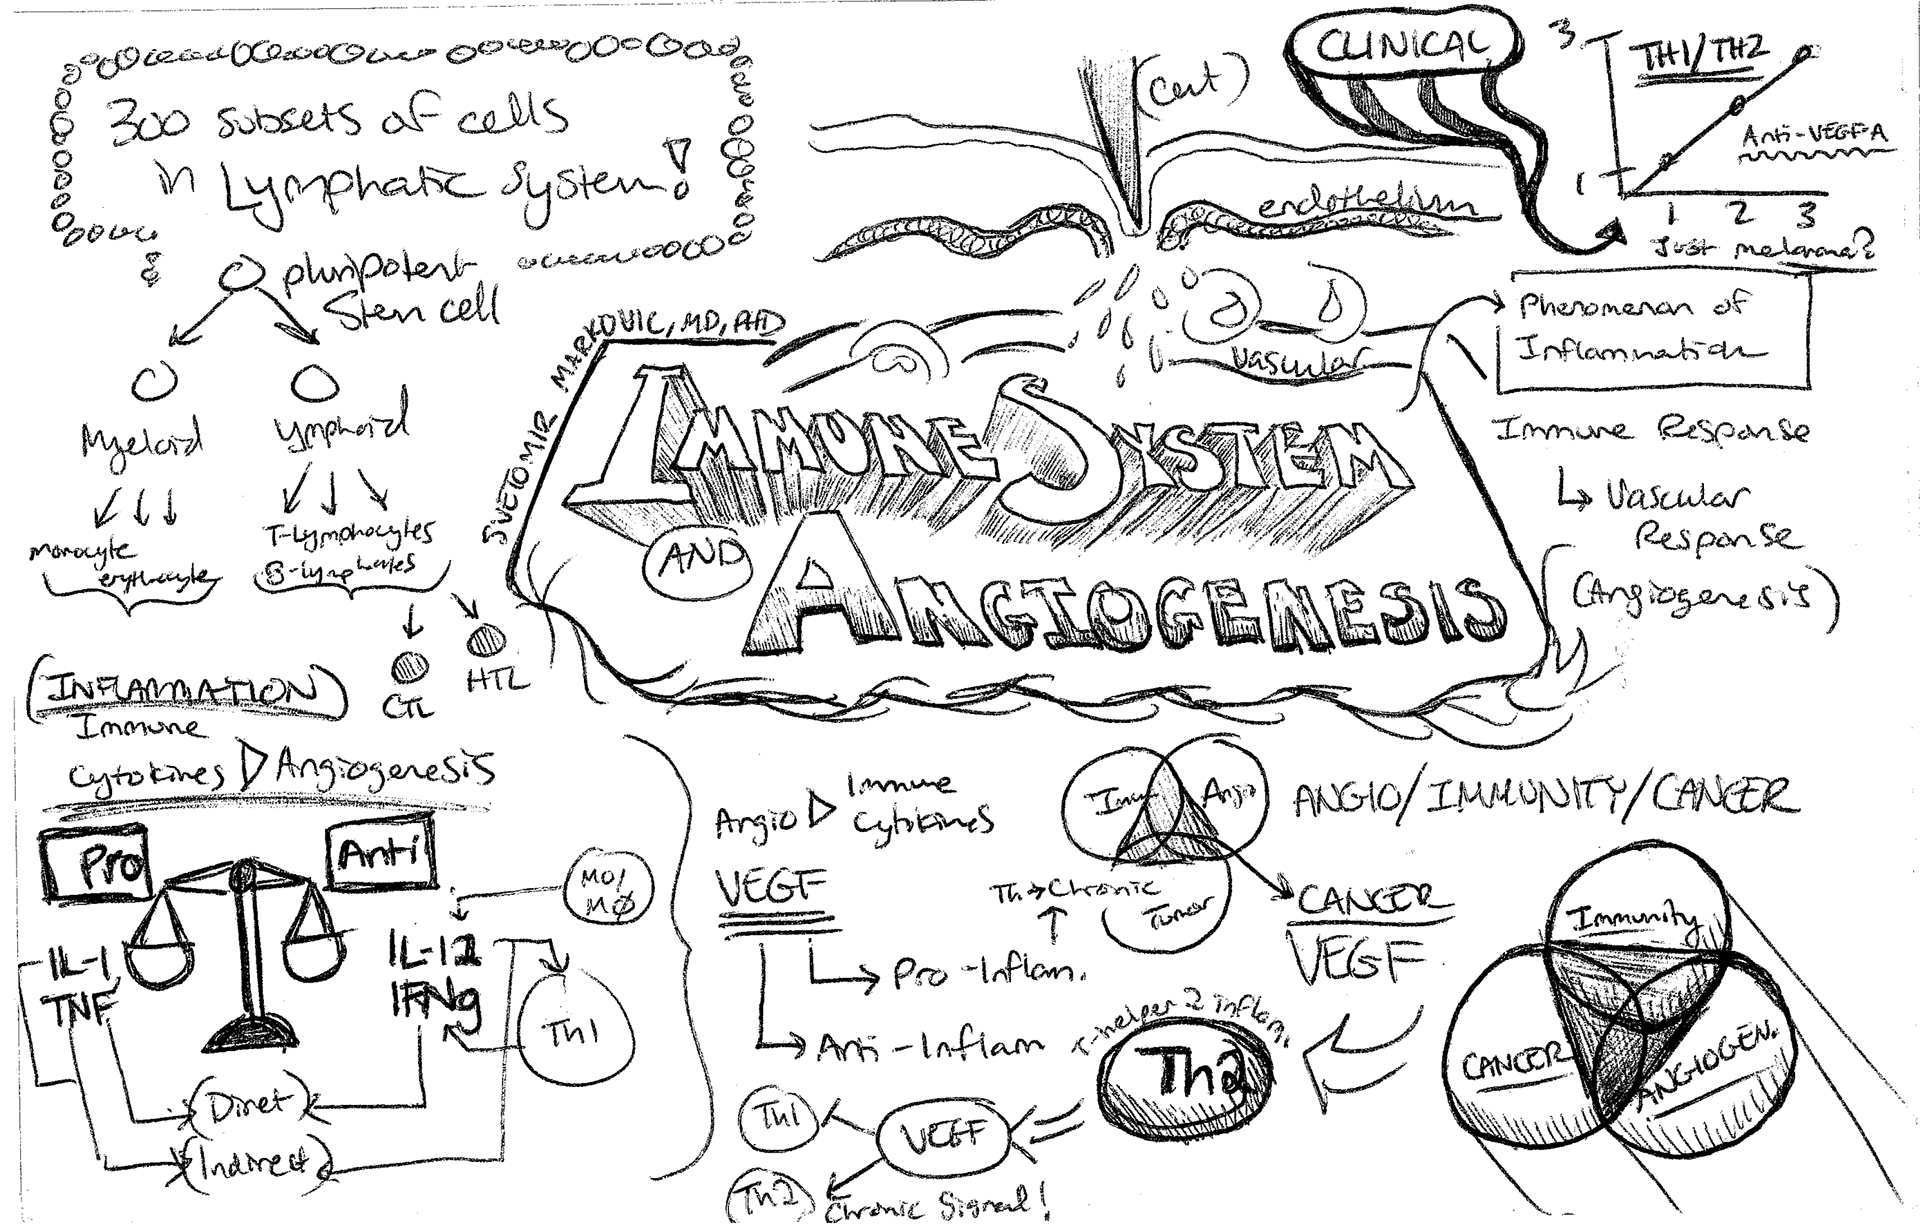 300 subsets of cells
in Lymphatic System!
pluripotent
Stem cell
Myeloid
lymphoid
monocyte
erythrocyte
T-Lymphocytes
B-lymphocytes
CTL
HTL
(INFLAMMATION)
Immune
Cytokines ▷ Angiogenesis
Pro
Anti
IL-1
TNF
IL-12
IFNg
MO/
MØ
Th1
(Diret)
(Indirect)
SVETOMIR MARKOVIC, MD, PHD
IMMUNE SYSTEM
AND
ANGIOGENESIS
(Cut)
endothelium
Vascular
CLINICAL
3
TH1/TH2
Anti-VEGF-A
1
1 2 3
Just melanoma?
Phenomenon of
Inflammation
Immune Response
↳ Vascular
Response
(Angiogenesis)
Angio ▷ Immune
Cytokines
VEGF
Pro-Inflam.
Anti-Inflam
Th → Chronic
Imm
Angio
Tumor
ANGIO/IMMUNITY/CANCER
CANCER
VEGF
T-helper 2 inflam.
Th2
VEGF
Th1
Th2
Chronic Signal!
Immunity
CANCER
ANGIOGEN.